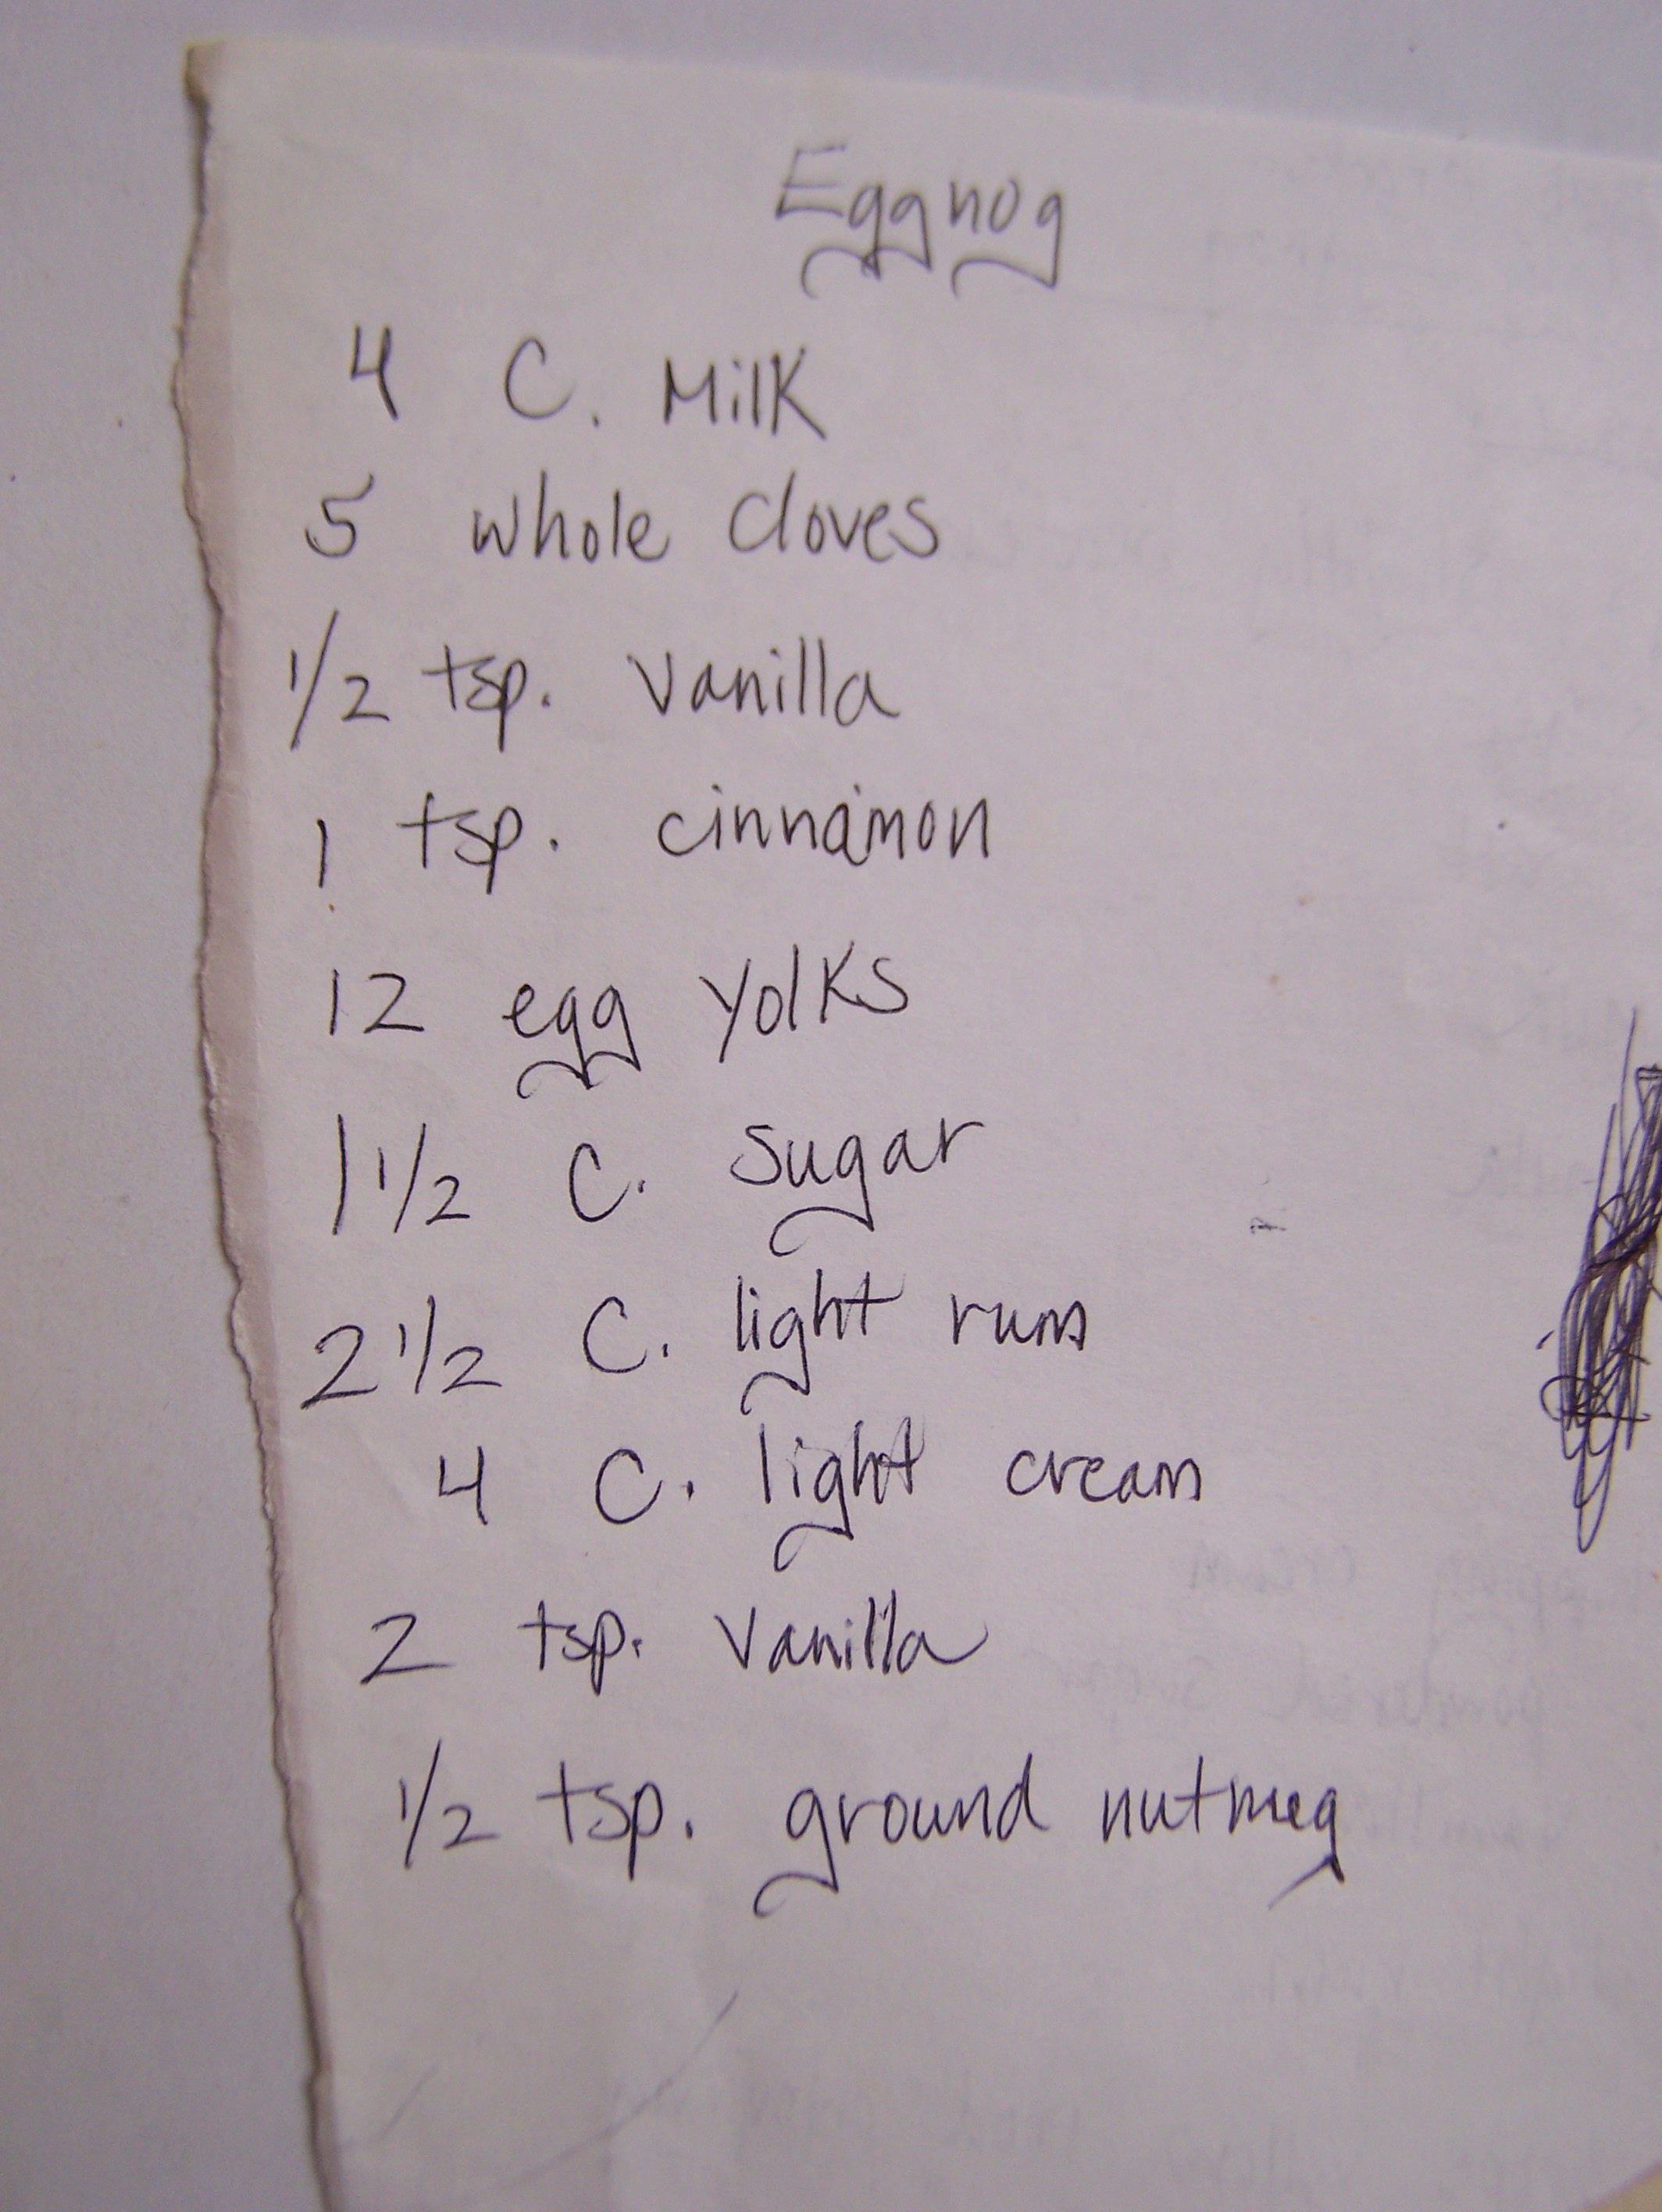 Eggnog
4 C. Milk
5 whole cloves
1/2 tsp. vanilla
1 tsp. cinnamon
12 egg yolks
1 1/2 C. sugar
2 1/2 C. light rum
4 C. light cream
2 tsp. vanilla
1/2 tsp. ground nutmeg